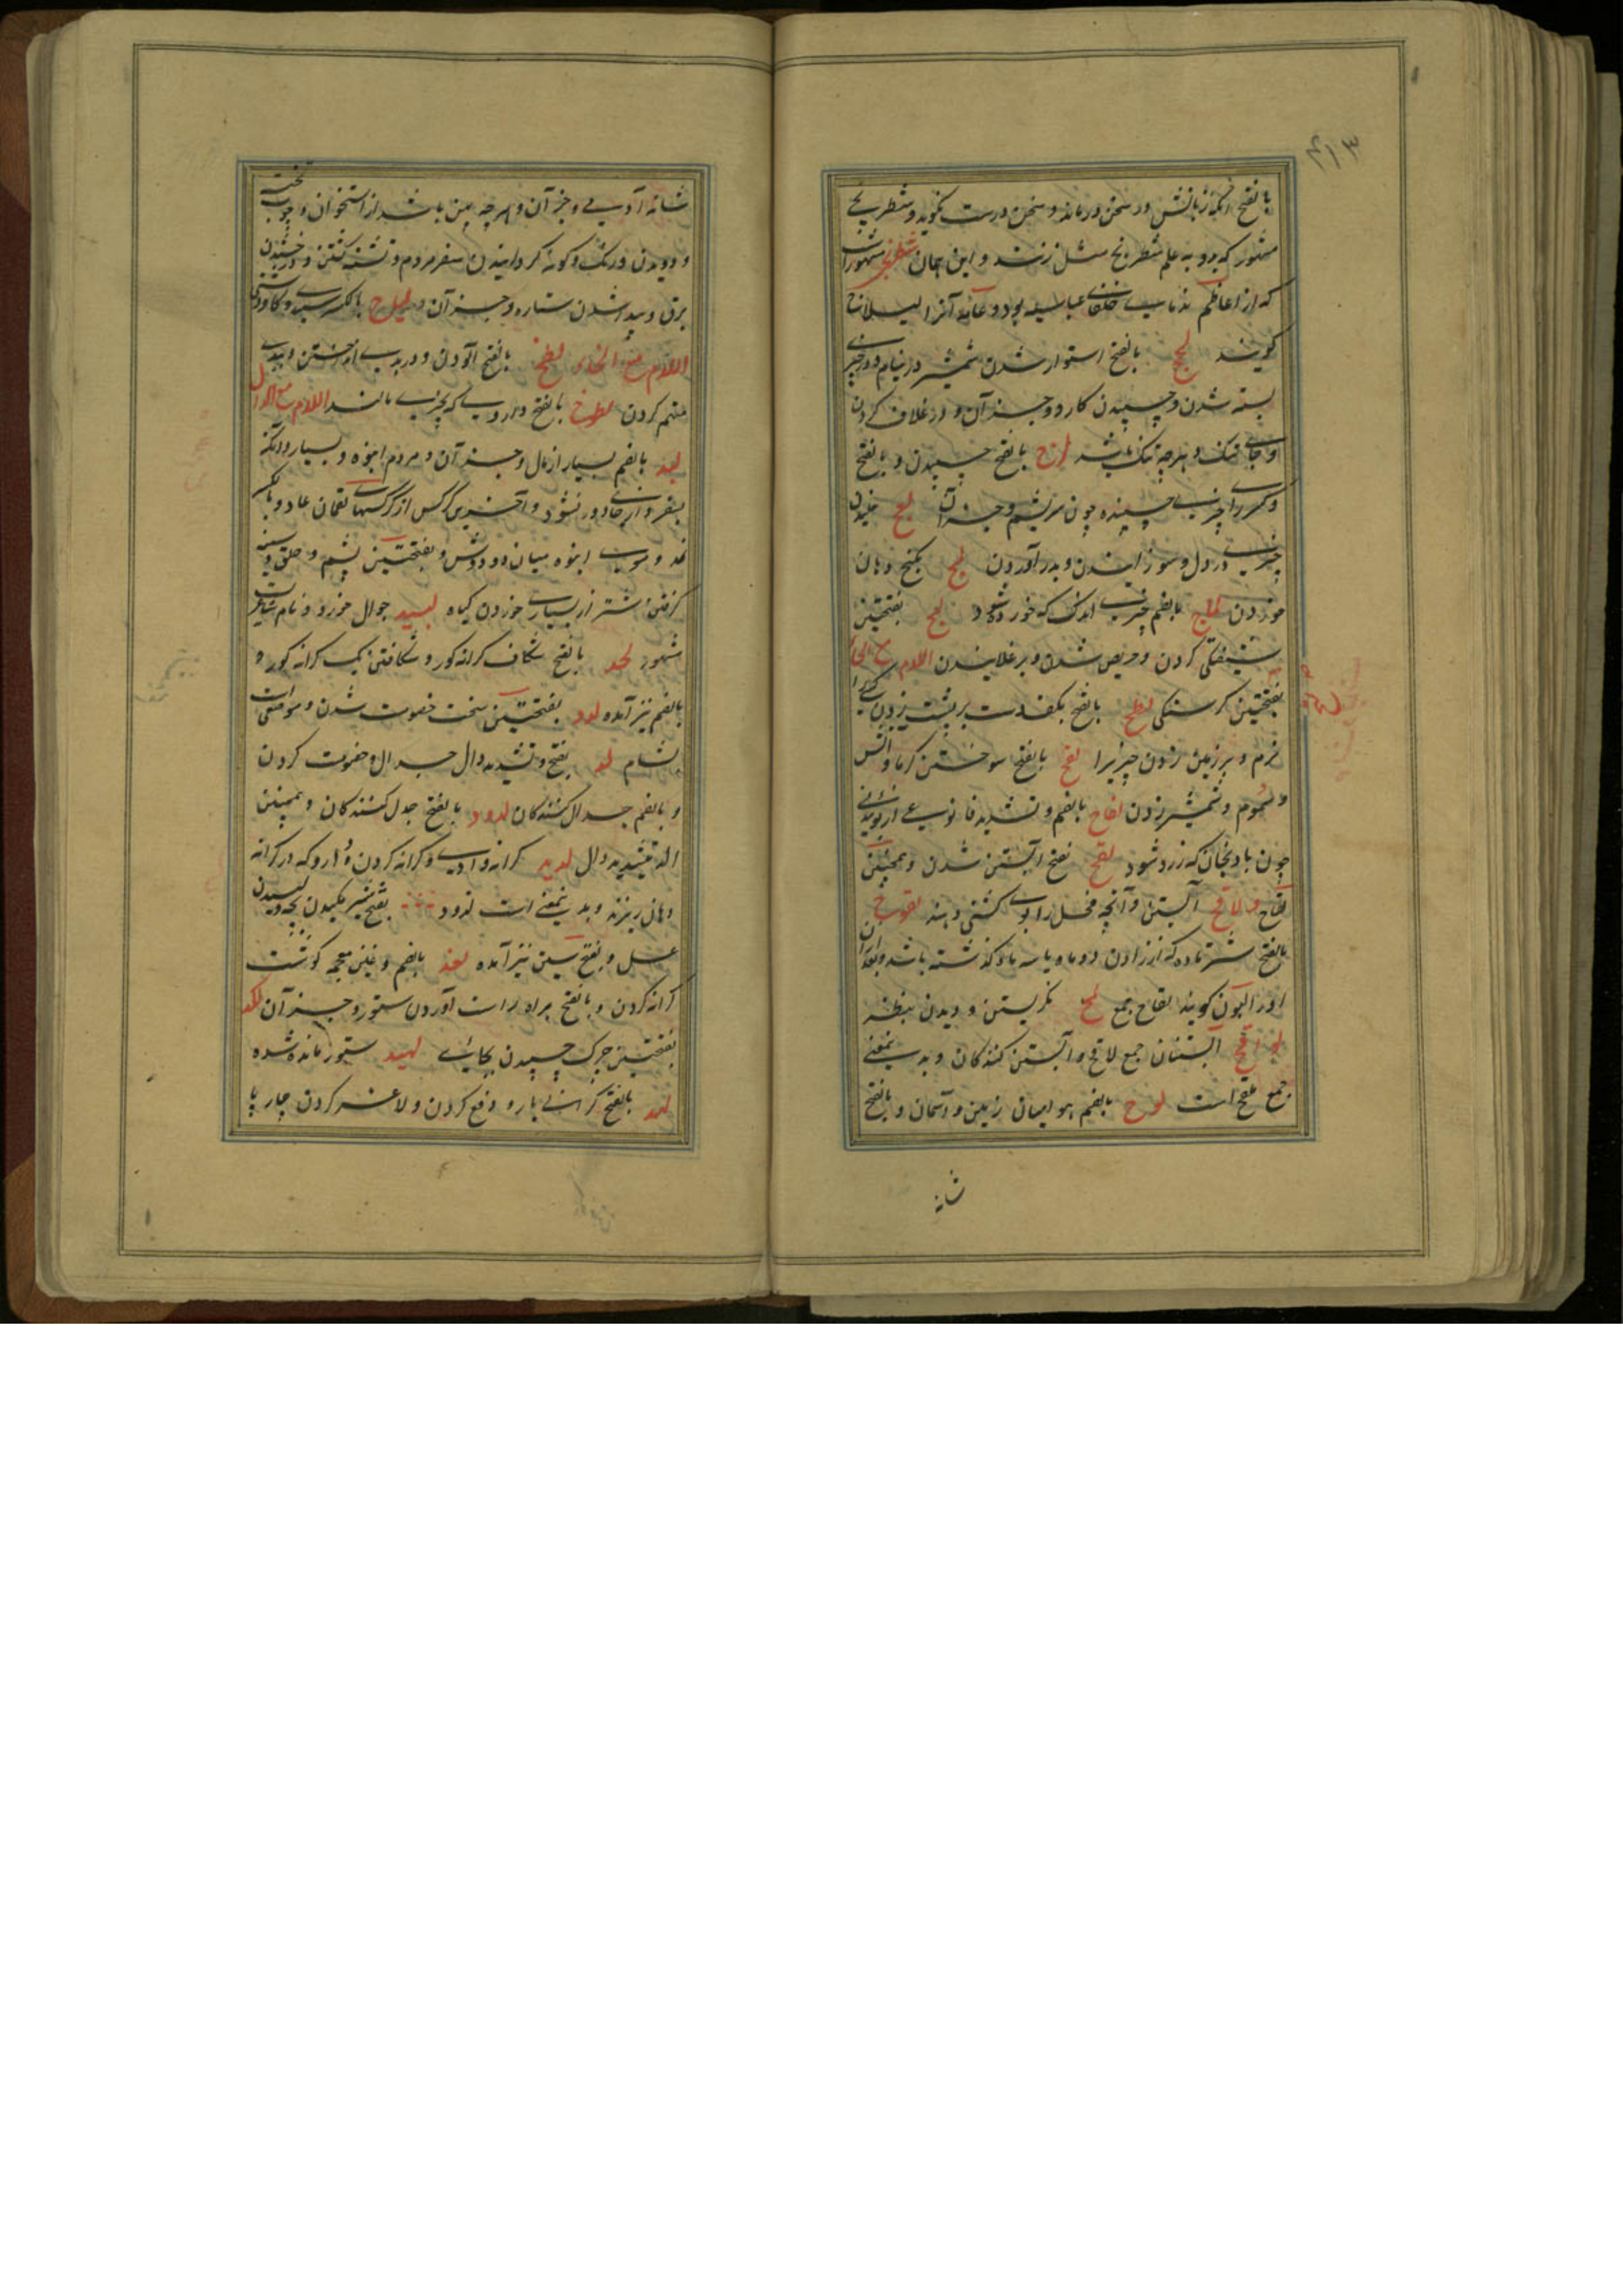 ۴۱۳
بالفتح آنکه زبانش در سخن درماند و سخن درست نگوید و شطرنجی
مشهور که بدو به علم شطرنج مثل زنند و این همان شطرنجی مشهور است
که از اعاظم ندمای خلفای عباسیه بود و عامه آنرا لیلاج
گویند لحج بالفتح استوار شدن شمشیر در نیام و در چیزی
بسته شدن و چسپیدن کارد و جز آن و در غلاف کردن
و جای تنک و هرچه تنک باشد لزج بالفتح چسپیدن و بالفتح
و کسر را چیزی چسپنده چون سریشم و جز آن لعج خلیدن
چیزی در دل و سوزانیدن و بدرد آوردن لمج بکنج دهان
خوردن لماج بالضم چیزی اندک که خورده شود لهج بفتحتین
شیفتگی کردن و حریص شدن و برغلانیدن اللام مع الحاء
بفتحتین کرسنگی لطح بالفتح بکف دست بر پشت زدن کسی را
نرم و بر زمین زدن چیزیرا لفح بالفتح سوختن گرما و آتش
و سموم و شمشیر زدن لفاح بالضم و تشدید فا نوعی از بوئیدنی
چون بادنجان که زرد شود لقح بفتح آبستن شدن و همچنین
لقاح و لاقح آبستن و آنچه فحل را و کشنی دهند لقوح
بالفتح شتر ماده که از زادن دو ماه یا سه ماه گذشته باشد و بعد از آن
او را لبون گویند لقاح جمع لمح نگریستن و دیدن بنظر
لواقح آبستنان جمع لاقح و آبستن کنندگان و بدین معنی
جمع ملقح است لوح بالضم هوا میان زمین و آسمان و بالفتح
شانه
شانه آدمی و جز آن و هرچه پهن باشد از استخوان و چوب تخته
و دویدن و رنگ و گونه گردانیدن سفر مردم و تشنه گشتن و درخشیدن
برق و پدید شدن ستاره و جز آن و لیاح بالکسر سپیدی و گاو دشتی
اللام مع الخاء لطخ بالفتح آلودن و در بدی انداختن و ببدی
متهم کردن لطوخ بالفتح داروی که بچیزی مالند اللام مع الدال
لبد بالضم بسیار از مال و جز آن و مردم انبوه و بسیار و آنکه
بسفر و از جای دور نشود و آخرین کرکس از کرکسهای لقمان عاد و بالکسر
نمد و موی انبوه میان دو دوش و بفتحتین پشم و حلق و سینه
گرفتن شتر از بسیاری خوردن گیاه لبید جوال خورد و نام شاعریست
مشهور لحد بالفتح شکاف کرانه گور و شکافتن یک کرانه گور و
بالضم نیز آمده لدد بفتحتین سخت خصومت شدن و موضعی است
بشام لد بفتح و تشدید دال جدال و خصومت کردن
و بالضم جدال کنندگان لدود بالفتح جدل کنندگان و همچنین
الد بتشدید دال لدید کرانه وادی و کرانه گردن و دارو که در کرانه
دهان ریزند و بدین معنی است لدود بفتح شیر مکیدن بچه و لیسیدن
عسل و بفتح سین نیز آمده لغد بالضم و غین معجمه گوشت
کرانه گردن و بالفتح براه راست آوردن ستور و جز آن لکد
بفتحتین چرک چسپیدن بجائی لهید ستور مانده شده
لهد بالفتح گرانی بار و دفع کردن و لاغر کردن چارپا